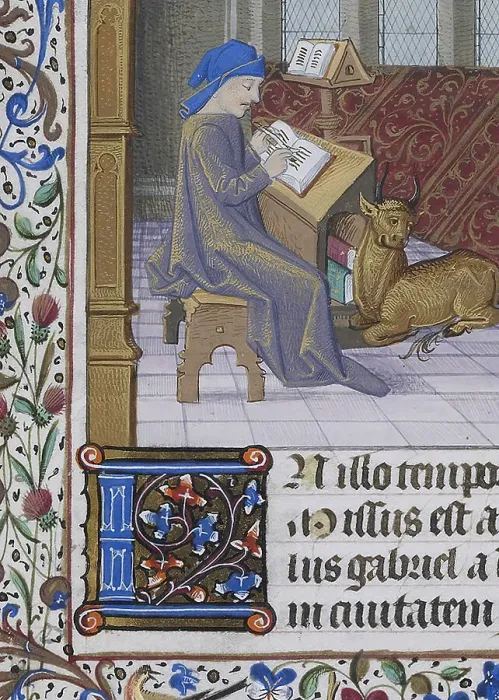 IN illo tempo
Missus est a
lus gabriel a
in ciuitatem